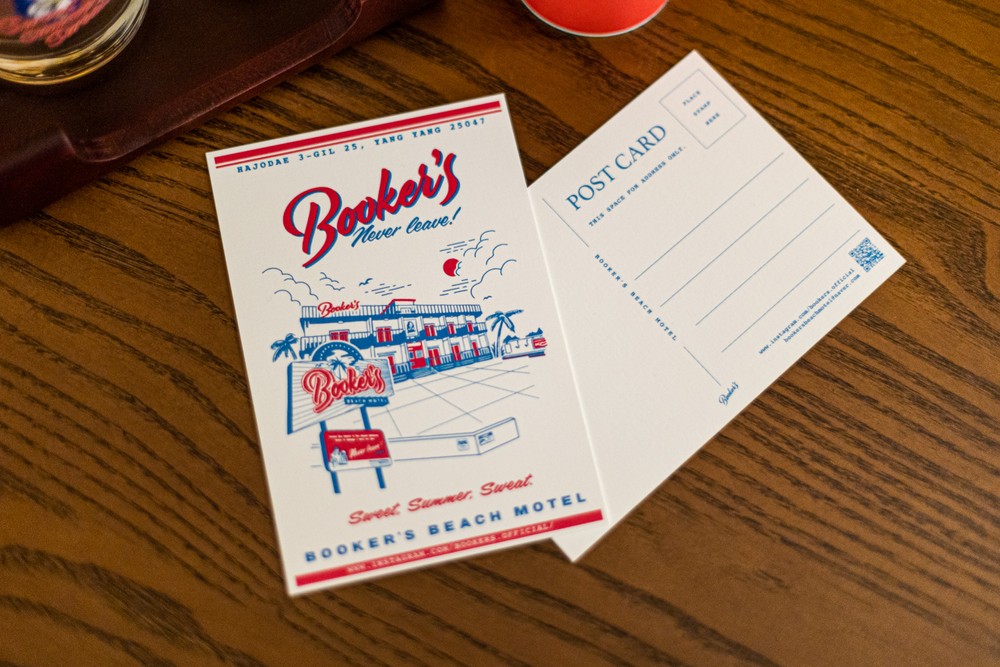 HAJODAE 3-GIL 25, YANG YANG 25047
Booker's
Never leave!
Booker's
Booker's
BEACH MOTEL
Never leave!
Sweet. Summer. Sweat.
BOOKER'S BEACH MOTEL
WWW.INSTAGRAM.COM/BOOKERS.OFFICIAL/
PLACE
STAMP
HERE
POST CARD
THIS SPACE FOR ADDRESS ONLY.
BOOKER'S BEACH MOTEL
www.instagram.com/bookers.official
bookersbeachmotel@naver.com
Booker's